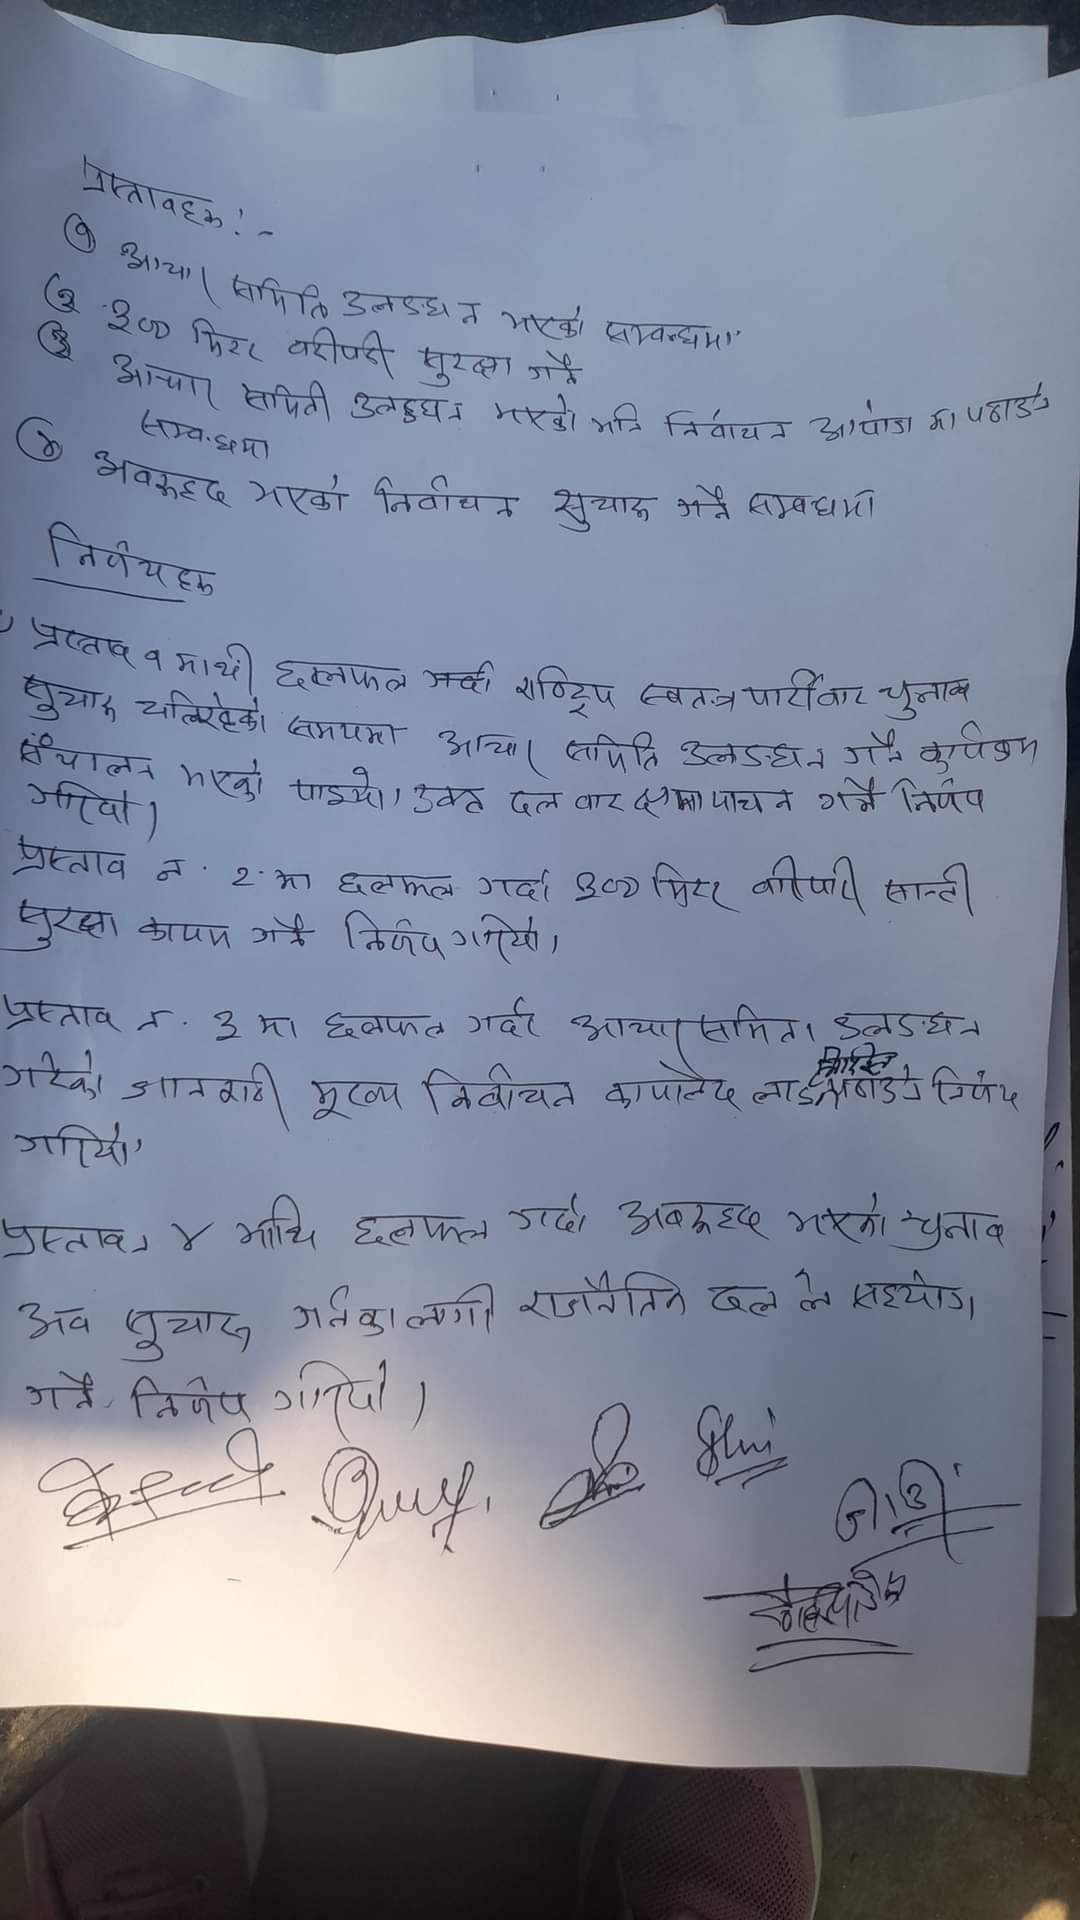 प्रस्तावहरू :-
① आचार समिति उलङ्घन भएको सम्वन्धमा
② ३०० मिटर वरीपरी सुरक्षा गर्ने
③ आचार समिती उलङ्घन भएको भनि निर्वाचन आयोग मा पठाउने
सम्वन्धमा
④ अवरूद्द भएको निर्वाचन सुचारू गर्ने सम्बधमा
निर्णयहरू
प्रस्ताव १ माथी छलफल गर्दा राष्ट्रिय स्वतन्त्र पार्टीवाट चुनाव
सुचारू चलिरहेको समयमा आचार समिति उलङ्घन गर्ने कार्यक्रम
संचालन भएको पाइयो। उक्त दल वाट क्षमा पाचन गर्ने निर्णय
गरियो।
प्रस्ताव न. २. मा छलफल गर्दा ३०० मिटर वरिपरी सान्ती
सुरक्षा कायम गर्ने निर्णय गरियो।
प्रस्ताव न. ३ मा छलफल गर्दा आचार समिता उलङघन
गरेको जानकारी मूख्य निर्वाचन कार्यालय लाई पठाउने निर्णय
गरियो।
प्रस्ताव न ४ माथि छलफल गर्दा अवरूद्द भएको चुनाव
अव सुचारू गर्नका लागी राजनैतिक दल ले सहयोग
गर्ने निर्णय गरियो।